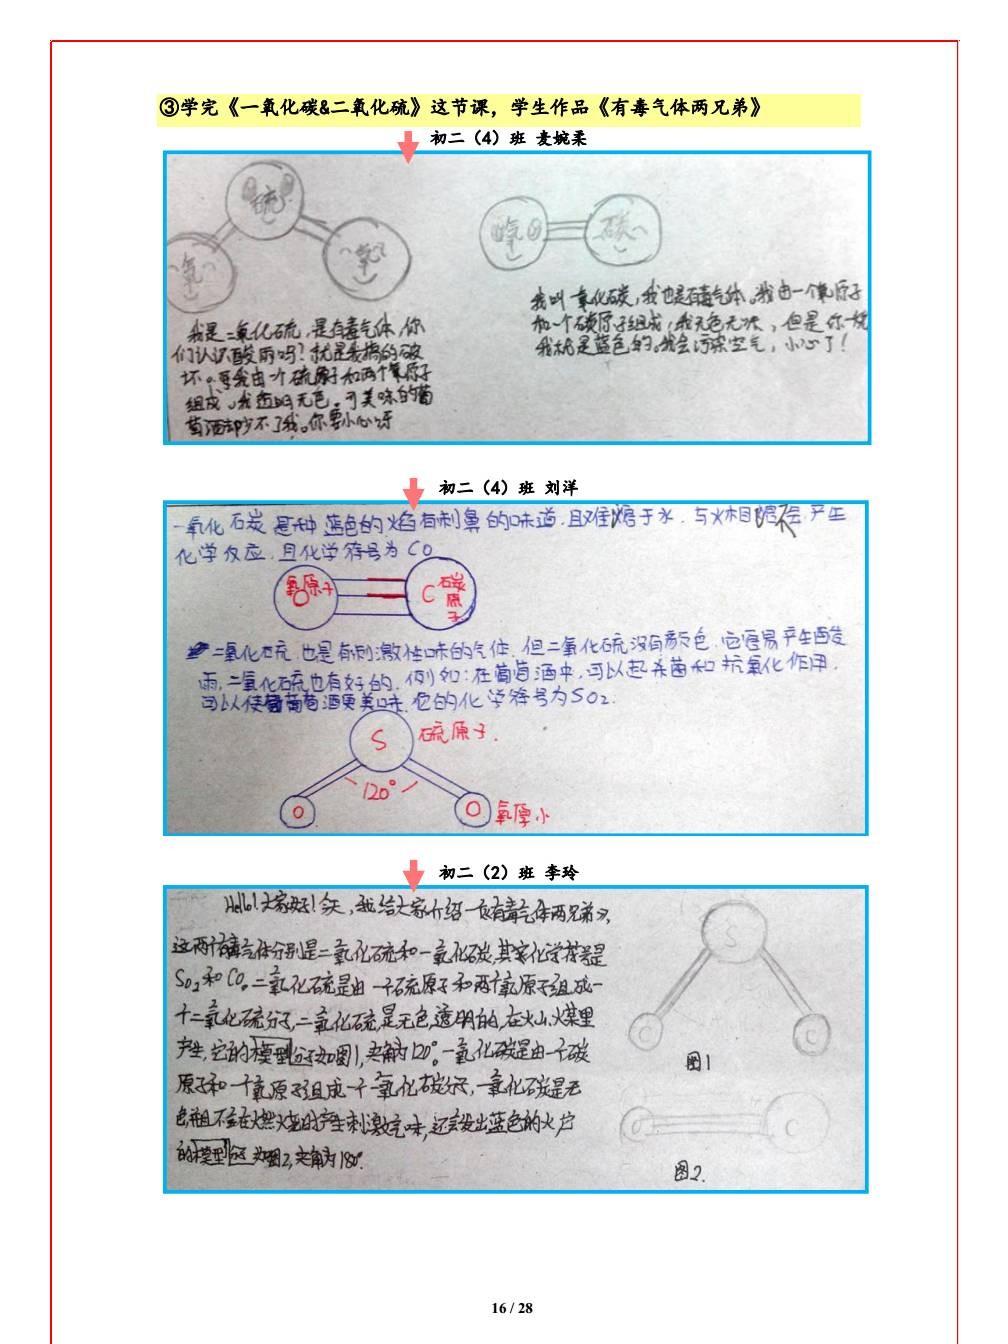 ③学完《一氧化碳&二氧化硫》这节课，学生作品《有毒气体两兄弟》
初二（4）班 麦婉柔
硫
氧
氧
氧
碳
我是二氧化硫，是有毒气体，你
们认识酸雨吗？就是我搞的破
坏。我由一个硫原子和两个氧原子
组成。我透明无色。可美味的葡
萄酒却少不了我。你要小心呀
我叫一氧化碳，我也是有毒气体。我由一个氧原子
和一个碳原子组成，我无色无味，但是你一烧
我就是蓝色的。我会污染空气，小心了！
初二（4）班 刘洋
一氧化碳是种蓝色的焰有刺鼻的味道，且难溶于水，与水相溶不会产生
化学反应，且化学符号为CO
氧原子
O
C
碳原子
二氧化硫也是有刺激性味的气体，但二氧化硫没有颜色，它容易产生酸
雨，二氧化硫也有好的，例如：在葡萄酒中，可以起杀菌和抗氧化作用，
可以使葡萄酒更美味，它的化学符号为SO₂.
S
硫原子.
120°
O
O
氧原小
初二（2）班 李玲
Hello！大家好！今天，我给大家介绍一《有毒气体两兄弟》，
这两个有毒气体分别是二氧化硫和一氧化碳，其化学符号是
SO₂和CO。二氧化硫是由一个硫原子和两个氧原子组成一
个二氧化硫分子，二氧化硫是无色透明的，在火山火菜里
产生，它的模型分子如图1，夹角为120°。一氧化碳是由一个碳
原子和一个氧原子组成一个一氧化碳分子，一氧化碳是无
色，并且不会在燃火的时产生刺激气味，还会发出蓝色的火
的模型 如图2，夹角为180°.
S
O
O
图1
O
C
图2.
16 / 28